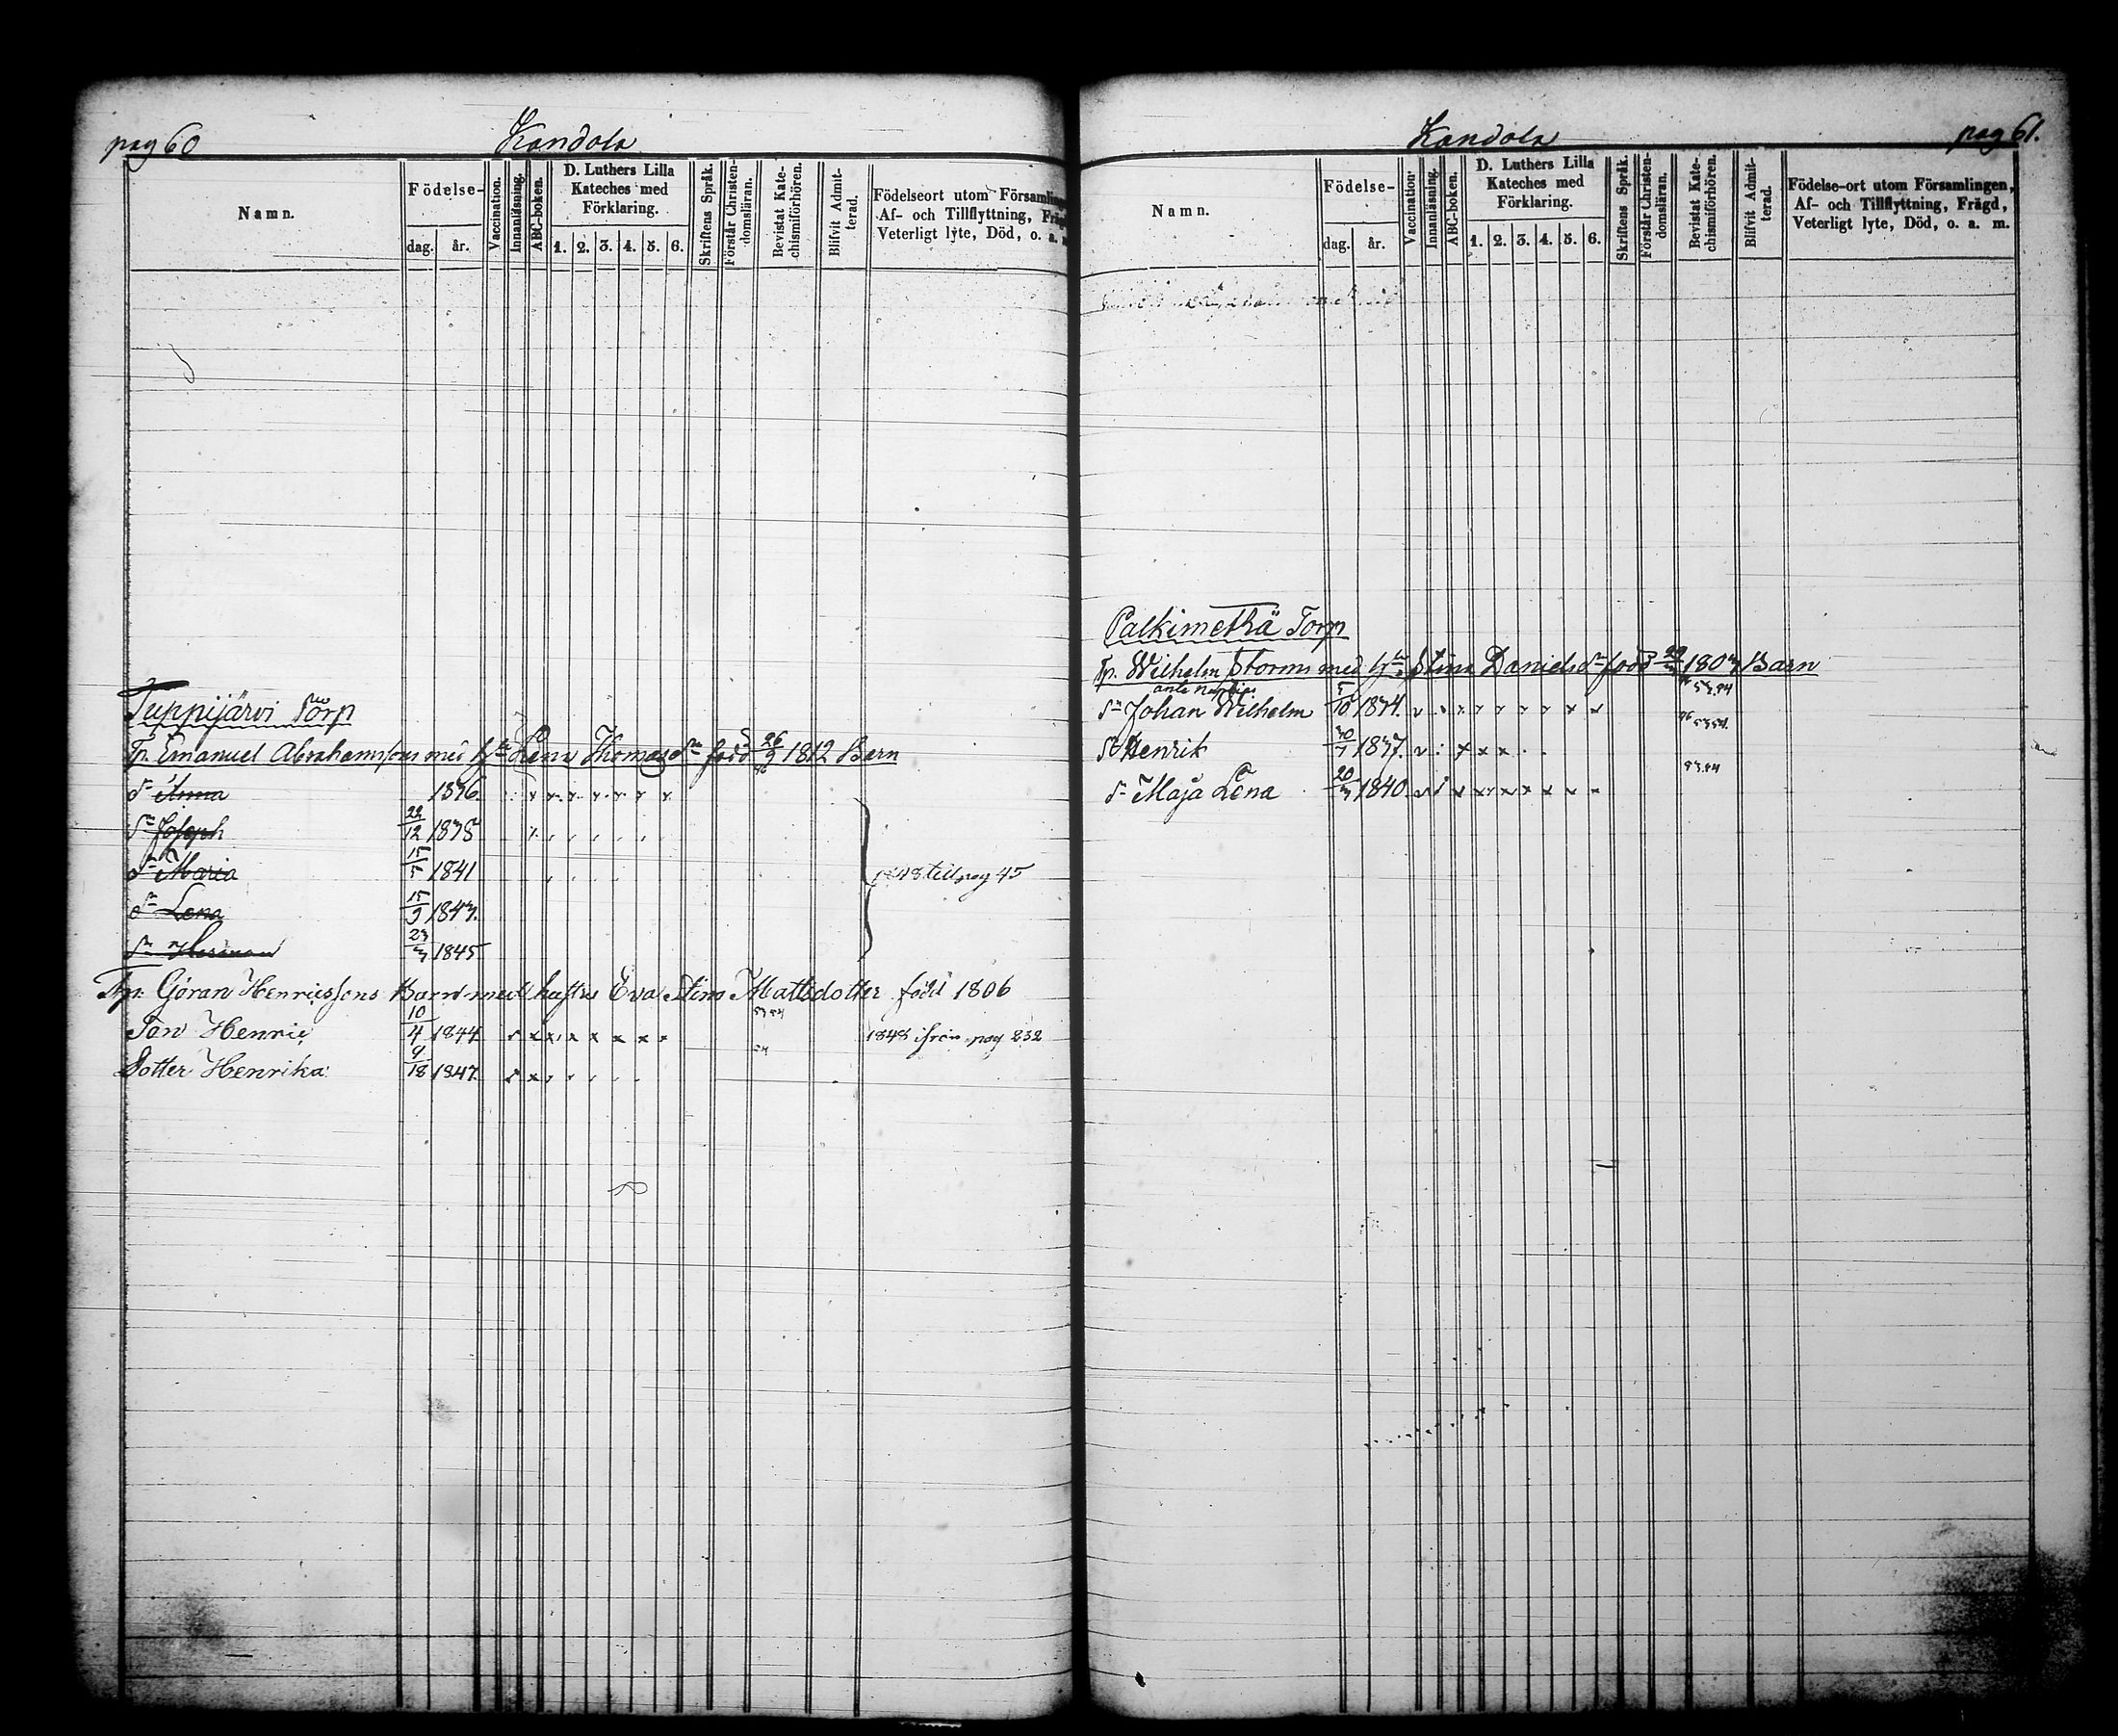 pag 60
Kandola
Namn.
Födelse-
dag.
år.
Vaccination.
Innanläsning.
ABC-boken.
D. Luthers Lilla
Kateches med
Förklaring.
1. 2. 3. 4. 5. 6.
Skriftens Språk.
Förstår Christen-
domsläran.
Bevistat Kate-
chismiförhören.
Blifvit Admit-
terad.
Födelseort utom Församlingen
Af- och Tillflyttning,
Veterligt lyte, Död, o. a. m
Tuppijärvi Torp
Tp. Emanuel Abrahamssons med h Lena Thomas dr född 26/9 1812 Barn
dr Anna 1836.
Sn Joseph 22/12 1838
dr Maria 15/5 1841
dr Lena 15/9 1843.
Sn Herman 23/3 1845
1848 till pag 45
Tp. Göran Henricssons Barn med hustru Eva Stina Mattsdotter född 1806
Son Henric 10/4 1844 53 54 1848 ifrån pag 232
Dotter Henrika 9/18 1847. 54
Kandola
pag 61.
Namn.
Födelse-
dag.
år.
Vaccination.
Innanläsning.
ABC-boken.
D. Luthers Lilla
Kateches med
Förklaring.
1. 2. 3. 4. 5. 6.
Skriftens Språk.
Förstår Christen-
domsläran.
Bevistat Kate-
chismiförhören.
Blifvit Admit-
terad.
Födelse-ort utom Församlingen,
Af- och Tillflyttning, Frägd,
Veterligt lyte, Död, o. a. m.
Palkimethä Torp
Tp. Wilhelm Storms med h Stina Daniels dr född 1803 Barn
Sn Johan Wilhelm 5/10 1834. 53.54
Henrik 30/1 1837. 53 54.
dr Maja Lena 20/3 1840. 53.54